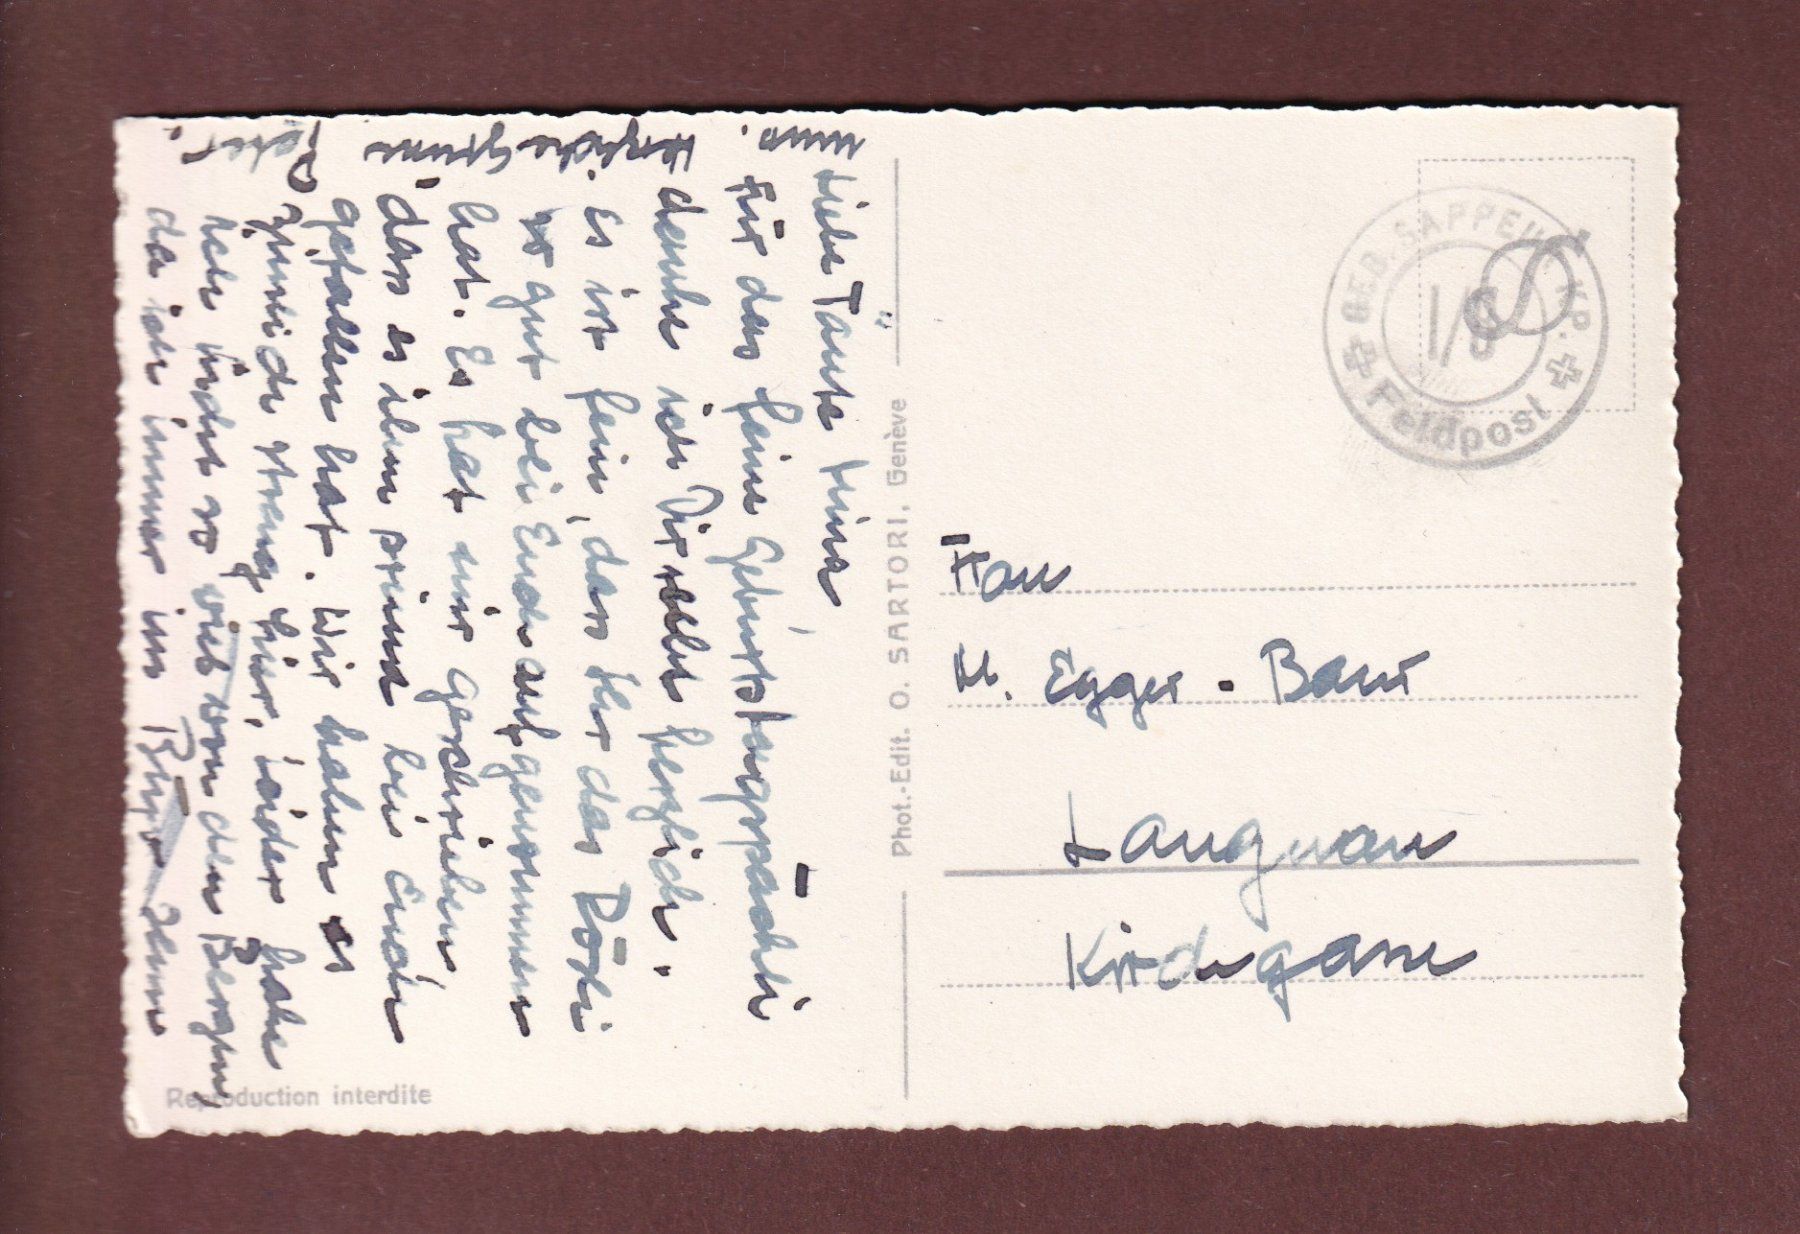 Liebe Tante Lina
Für das feine Geburtstagspäckli
danke ich Dir recht herzlich.
Es ist fein, dass Ihr das Rösli
so gut bei Euch aufgenommen
hat. Es hat mir geschrieben
dass es ihm prima bei Euch
gefallen hat. Wir haben es
ziemlich streng hier, leider habe
ich nicht so viel von den Bergen,
da ich immer im Büro
muss.
Herzliche Grüsse
Peter.
Phot.-Edit. O. SARTORI, Genève
Reproduction interdite
GEB. SAPPEUR KP.
I/8
Feldpost
Frau
L. Egger-Baur
Langnau
Kirchgasse